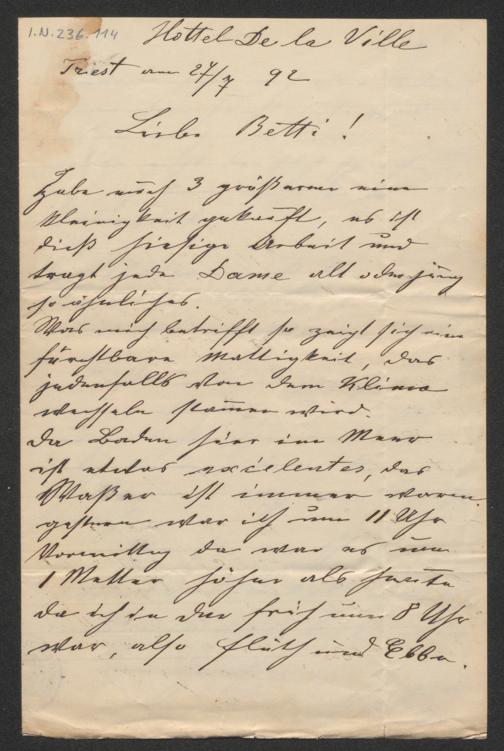 I.N. 236.114
Hottel De la Ville
Triest am 27/7 92
Liebe Betti!
Habe noch 3 größeren eine
Kleinigkeit gekauft, es ist
dieß hiesige Arbeit und
tragt jede Dame alt oder jung
so ähnliches.
Was mich betrifft so zeigt sich eine
fürchtbare Mattigkeit, das
jedenfalls von dem Klima
wechseln stammen wird.
Da Baden hier im Meer
ist etwas excelentes, das
Waßer ist immer warm.
gestern war ich um 11 Uhr
Vormittag da war es um
1 Metter höher als heute
da ich in der früh um 8 Uhr
war, also fluth und Ebbe.